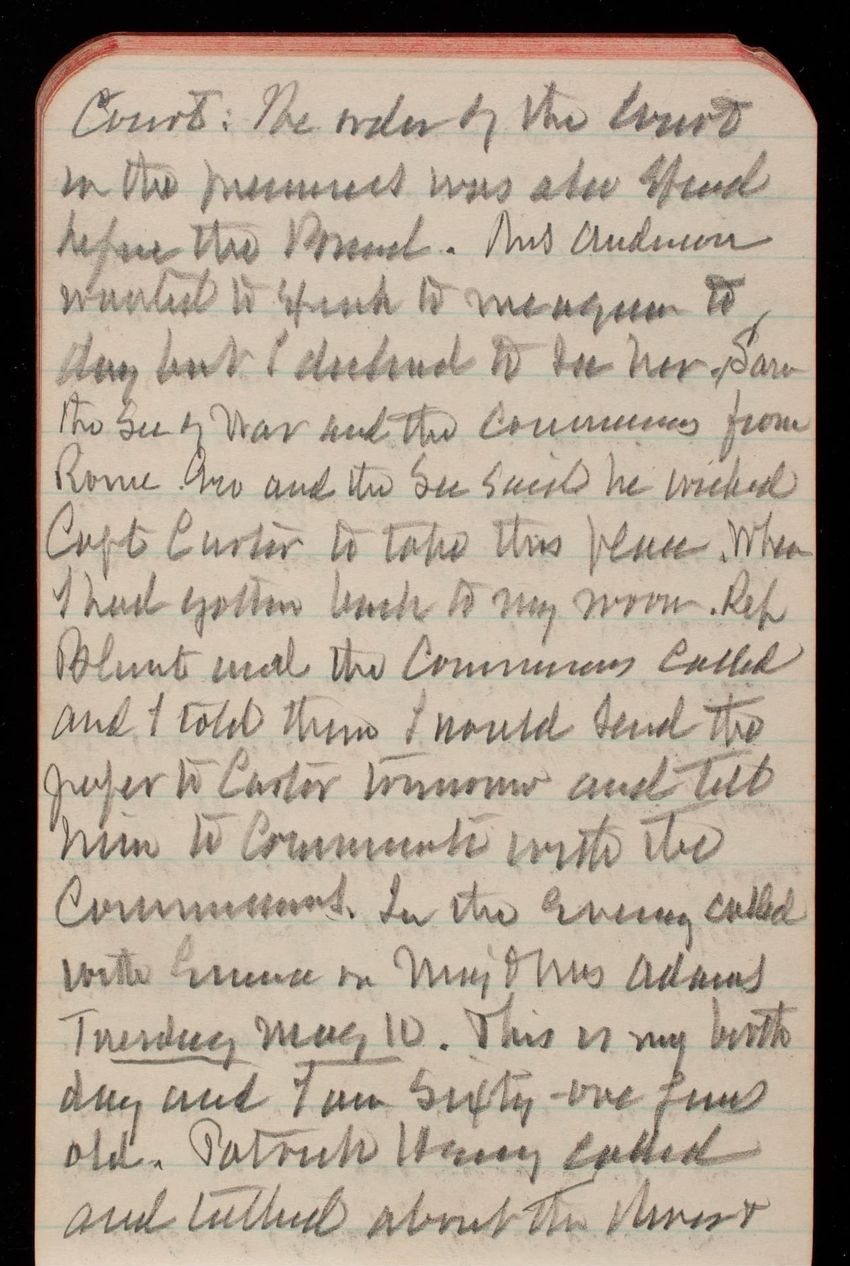 Court: The order of the Court
in the premises was also
before the Board. Mrs Anderson
wanted to speak to me again to
day but I declined to see her. Saw
the Sec of War and the Commissioners from
Rome Geo and the Sec said he wished
Capt Carter to take this place. When
I had gotten back to my room. Rep
Blunt and the Commissioners called
and I told them I would send the
paper to Carter tomorrow and tell
him to Communicate with the
Commissioners. In the Evening called
with Emma on Maj & Mrs Adams
Tuesday May 10. This is my birth
day and I am Sixty-one years
old. Patrick Henry called
and talked about the